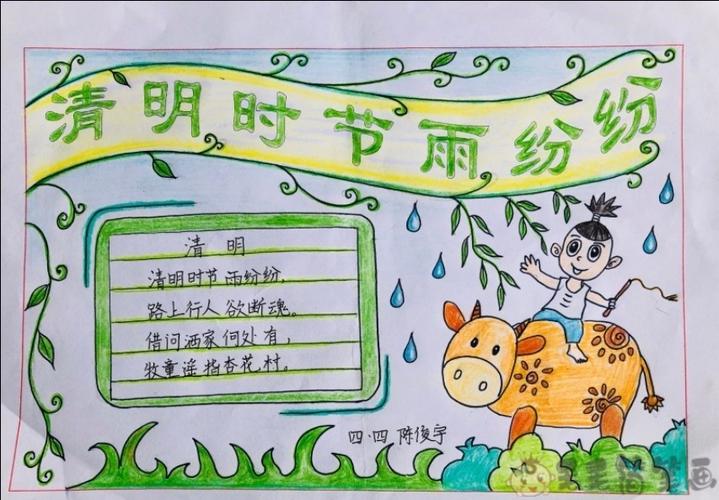 清明时节雨纷纷
清明
清明时节雨纷纷,
路上行人欲断魂。
借问洒家何处有,
牧童遥指杏花村。
四.四 陈俊宇
简笔画